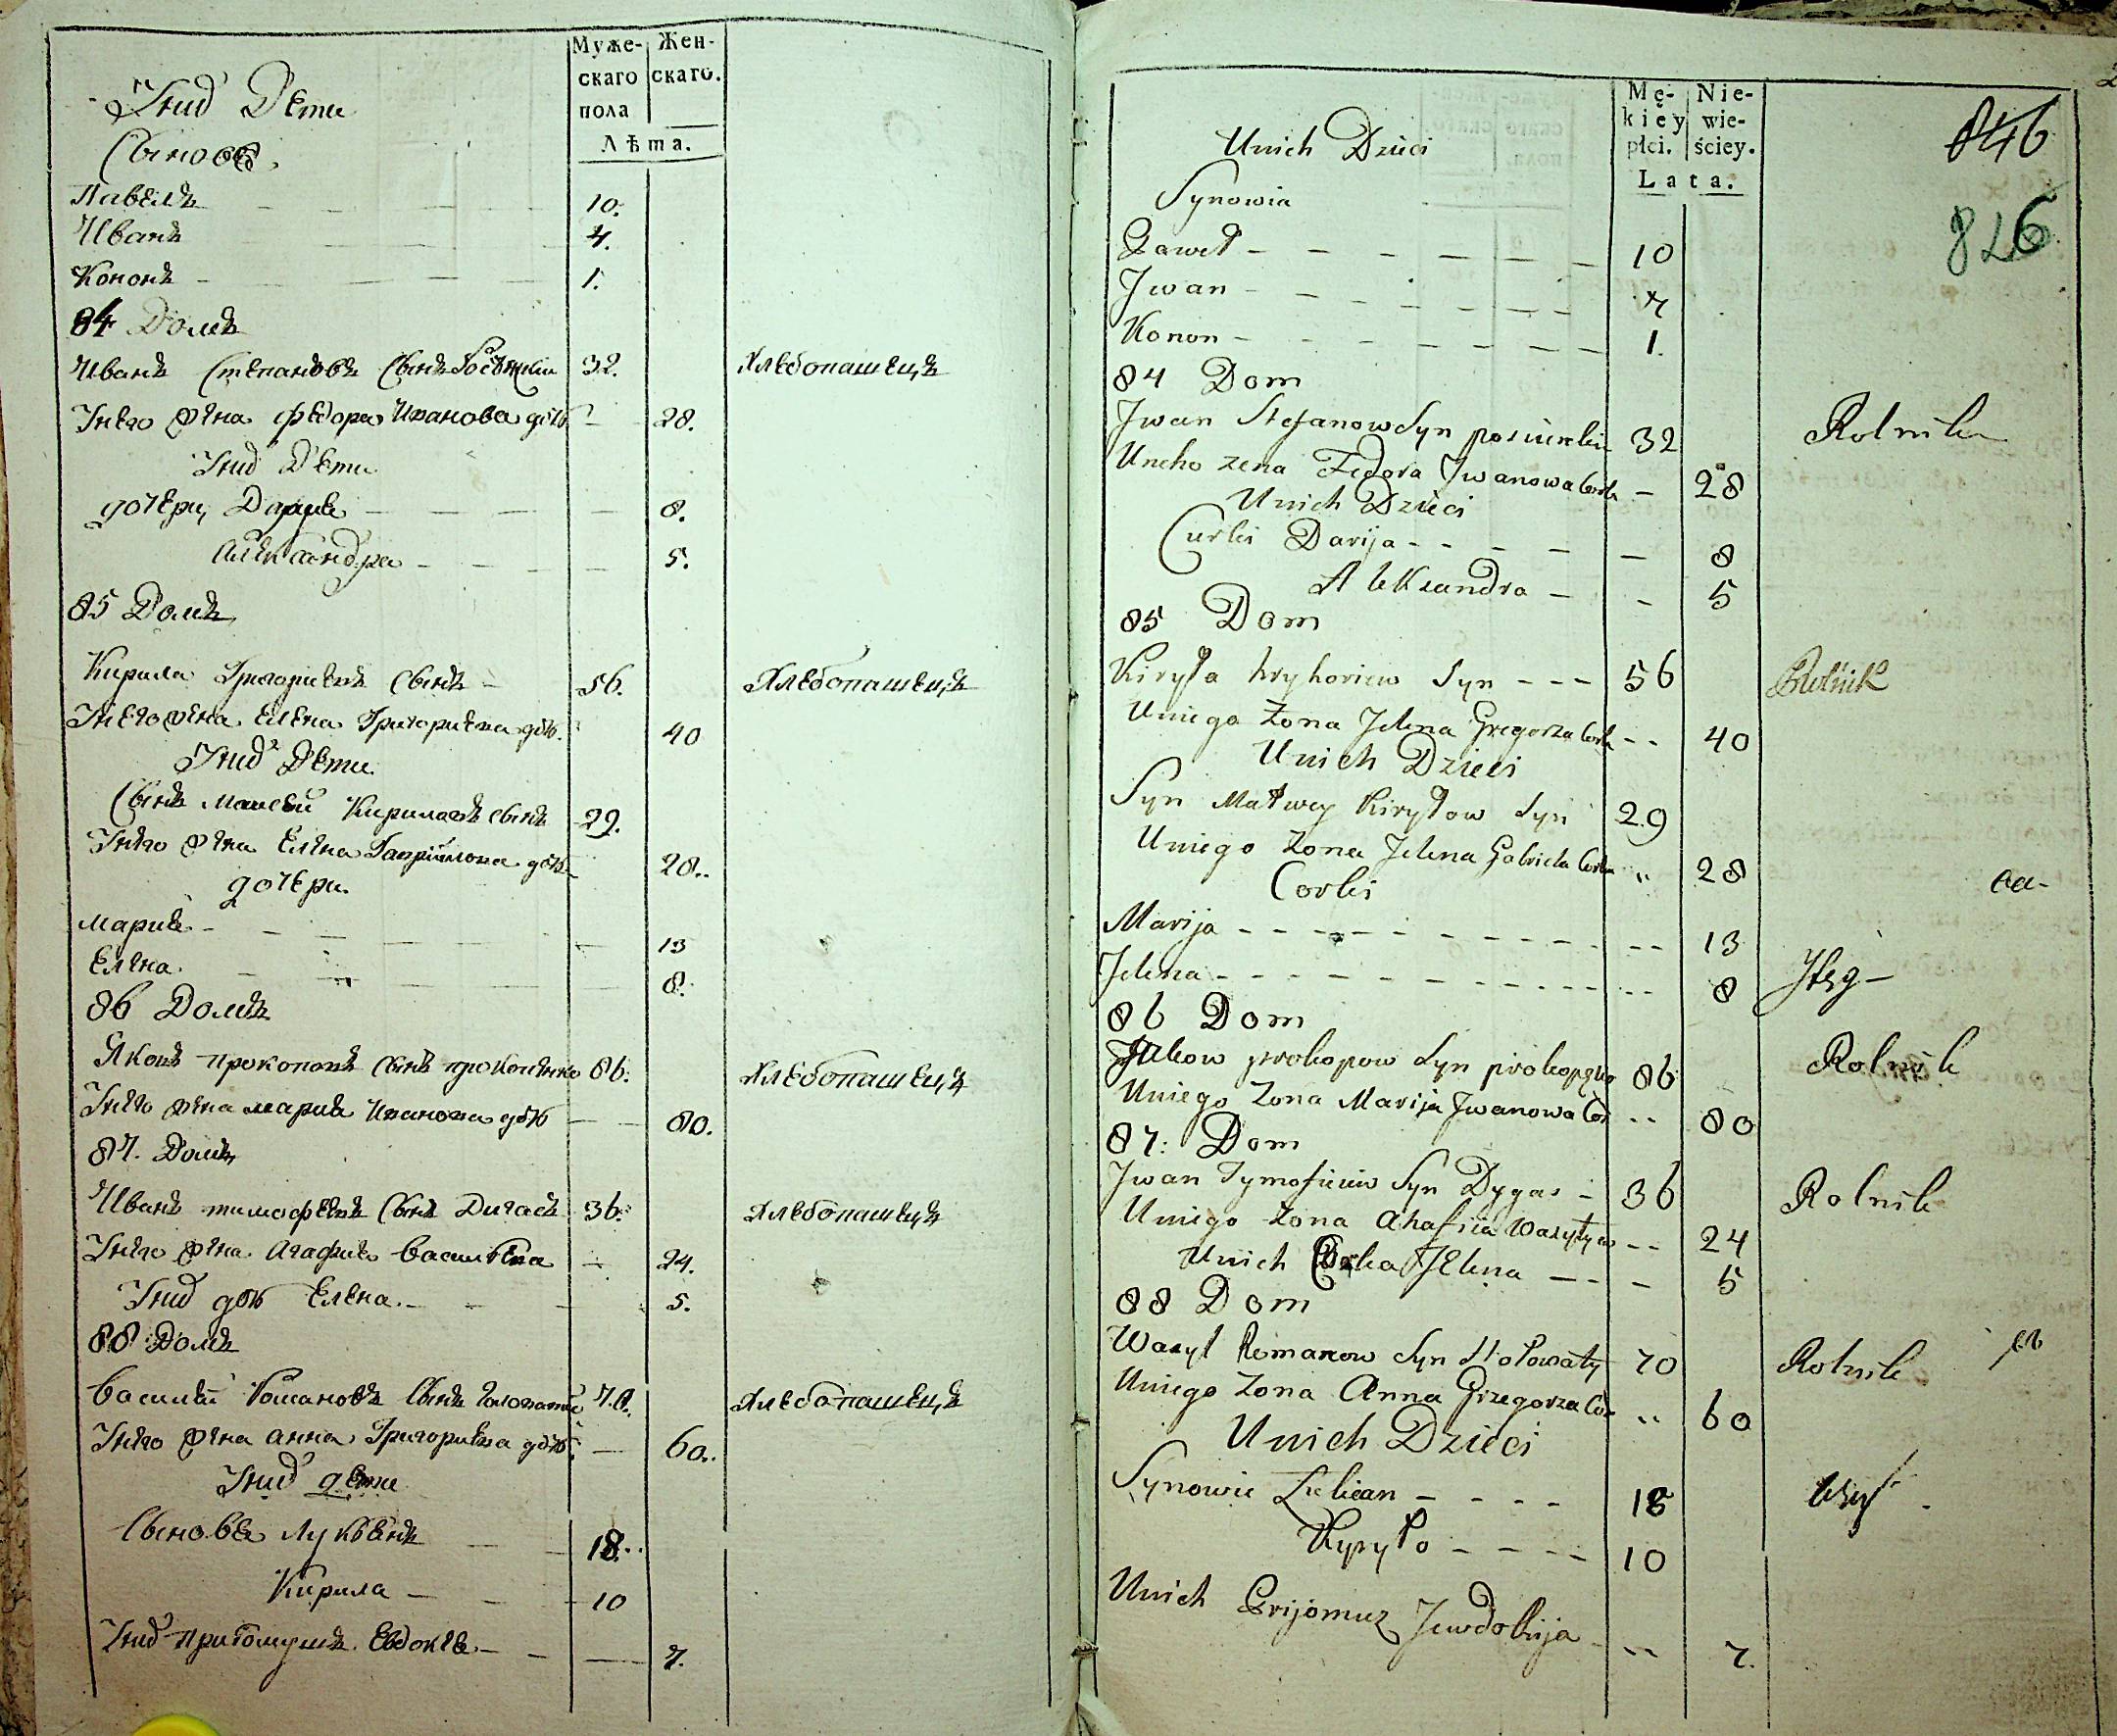 Муже-
скаго
пола
Жен-
скаго.
Лѣта.
Унид Дети
Сынове
Павелъ 10.
Иванъ 7.
Кононъ 1.
84 Домъ
Иванъ Степановъ сынъ 32. Хлебопашецъ
Унего жена Федора Иванова дочь 28.
Унид Дети
дочери, Дария 8.
Александра 5.
85 Домъ
Кирила Григориевъ сынъ 56. Хлебопашецъ
Унего жена Елена Григориева дочь. 40
Унид Дети
Сынъ Матвей Кириловъ сынъ 29.
Унего жена Елена Гавриилова дочь 28..
дочери.
Мария 13
Елена. 8.
86 Домъ
Яковъ Прокоповъ сынъ 86. Хлебопашецъ
Унего жена Мария Иванова дочь 80.
87. Домъ
Иванъ Тимофеевъ сынъ Дигасъ 36. Хлебопашецъ
Унего жена Агафия Василева 24.
Унид дочь Елена. 5.
88 Домъ
Василий Романовъ сынъ Головатий 70. Хлебопашецъ
Унего жена Анна Григориева дочь 60..
Унид дети
Сынове Лукъянъ 18..
Кирила 10
Унид Приёмушъ Евдокия 7.
Mę-
kiey
płci.
Nie-
wie-
ściey.
Lata.
846
826
Unich Dzieci
Synowia
Paweł 10
Jwan 7
Konon 1.
84 Dom
Jwan Stefanow Syn 32 Rolnik
Uneho zena Fedora Jwanowa Corka 28
Unich Dzieci
Curki Darija 8
Aleksandra 5
85 Dom
Kiryła hryhoriew Syn 56 Rolnik
Uniego Zona Jelena Gregorza Corka 40
Unich Dzieci
Syn Matwey Kiryłow Syn 29
Uniego Zona Jelena Gabriela Corka 28
Corki
Marija 13
Jelena 8
86 Dom
Jakow prokopow Syn 86 Rolnik
Uniego Zona Marija Jwanowa Cor 80
87: Dom
Jwan Tymofieiew Syn Dygas 36 Rolnik
Uniego Zona Ahafiia Wasyly 24
Unich Corka Jelena 5
88 Dom
Wasyl Romanow Syn Hołowaty 70 Rolnik
Uniego Zona Anna Grzegorza Cor 60
Unich Dzieci
Synowie Łukian 18
Kyryło 10
Unich Prijomuz Jewdokija 7.